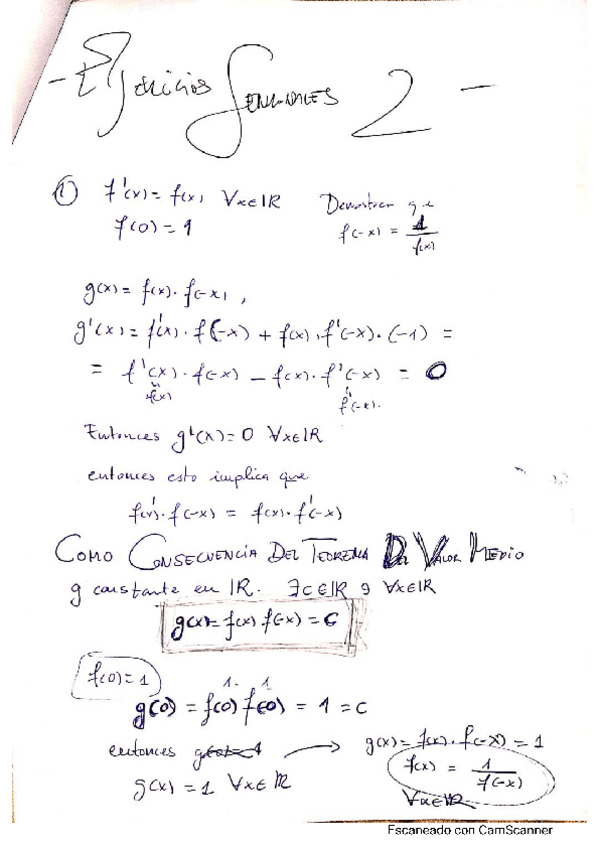 - Ejercicios Semanales 2 -
① f'(x) = f(x) ∀x∈ℝ Demostrar que
f(0) = 1 f(-x) = 1/f(x)
g(x) = f(x) · f(-x),
g'(x) = f'(x) · f(-x) + f(x) · f'(-x) · (-1) =
= f'(x) · f(-x) - f(x) · f'(-x) = 0
f(x) f'(-x).
Entonces g'(x) = 0 ∀x∈ℝ
entonces esto implica que
f'(x) · f(-x) = f(x) · f'(-x)
COMO CONSECUENCIA DEL TEOREMA DEL VALOR MEDIO
g constante en ℝ. ∃c∈ℝ ∋ ∀x∈ℝ
g(x) = f(x) f(-x) = c
f(0) = 1
1 · 1
g(0) = f(0) f(-0) = 1 = c
entonces g(x) = f(x) · f(-x) = 1
g(x) = 1 ∀x∈ℝ f(x) = 1/f(-x)
∀x∈ℝ
Escaneado con CamScanner